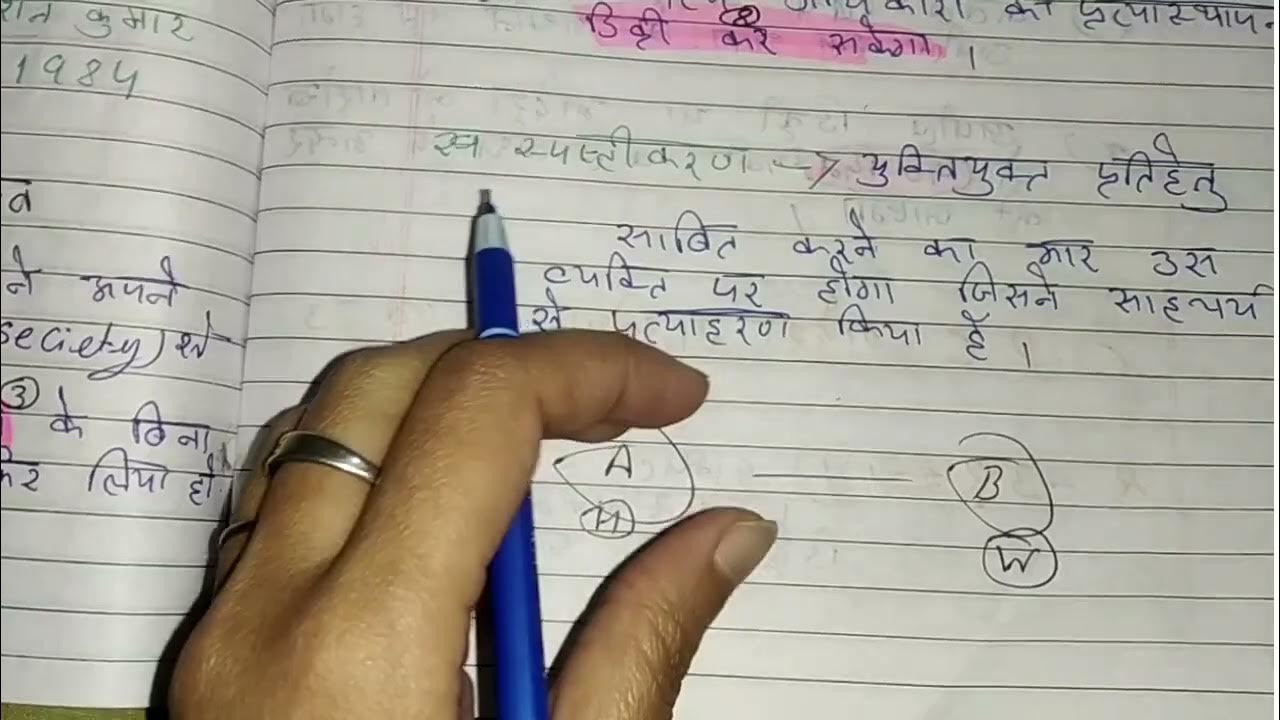 कुमार
1984
ने अपने
society) से
③
के बिना
कर लिया हो
का प्रत्यास्थापन
डिक्री कर सकेगा ।
स्पष्टीकरण → युक्तियुक्त प्रतिहेतु
साबित करने का भार उस
व्यक्ति पर होगा जिसने साहचर्य
से प्रत्याहरण किया है ।
A B
H W